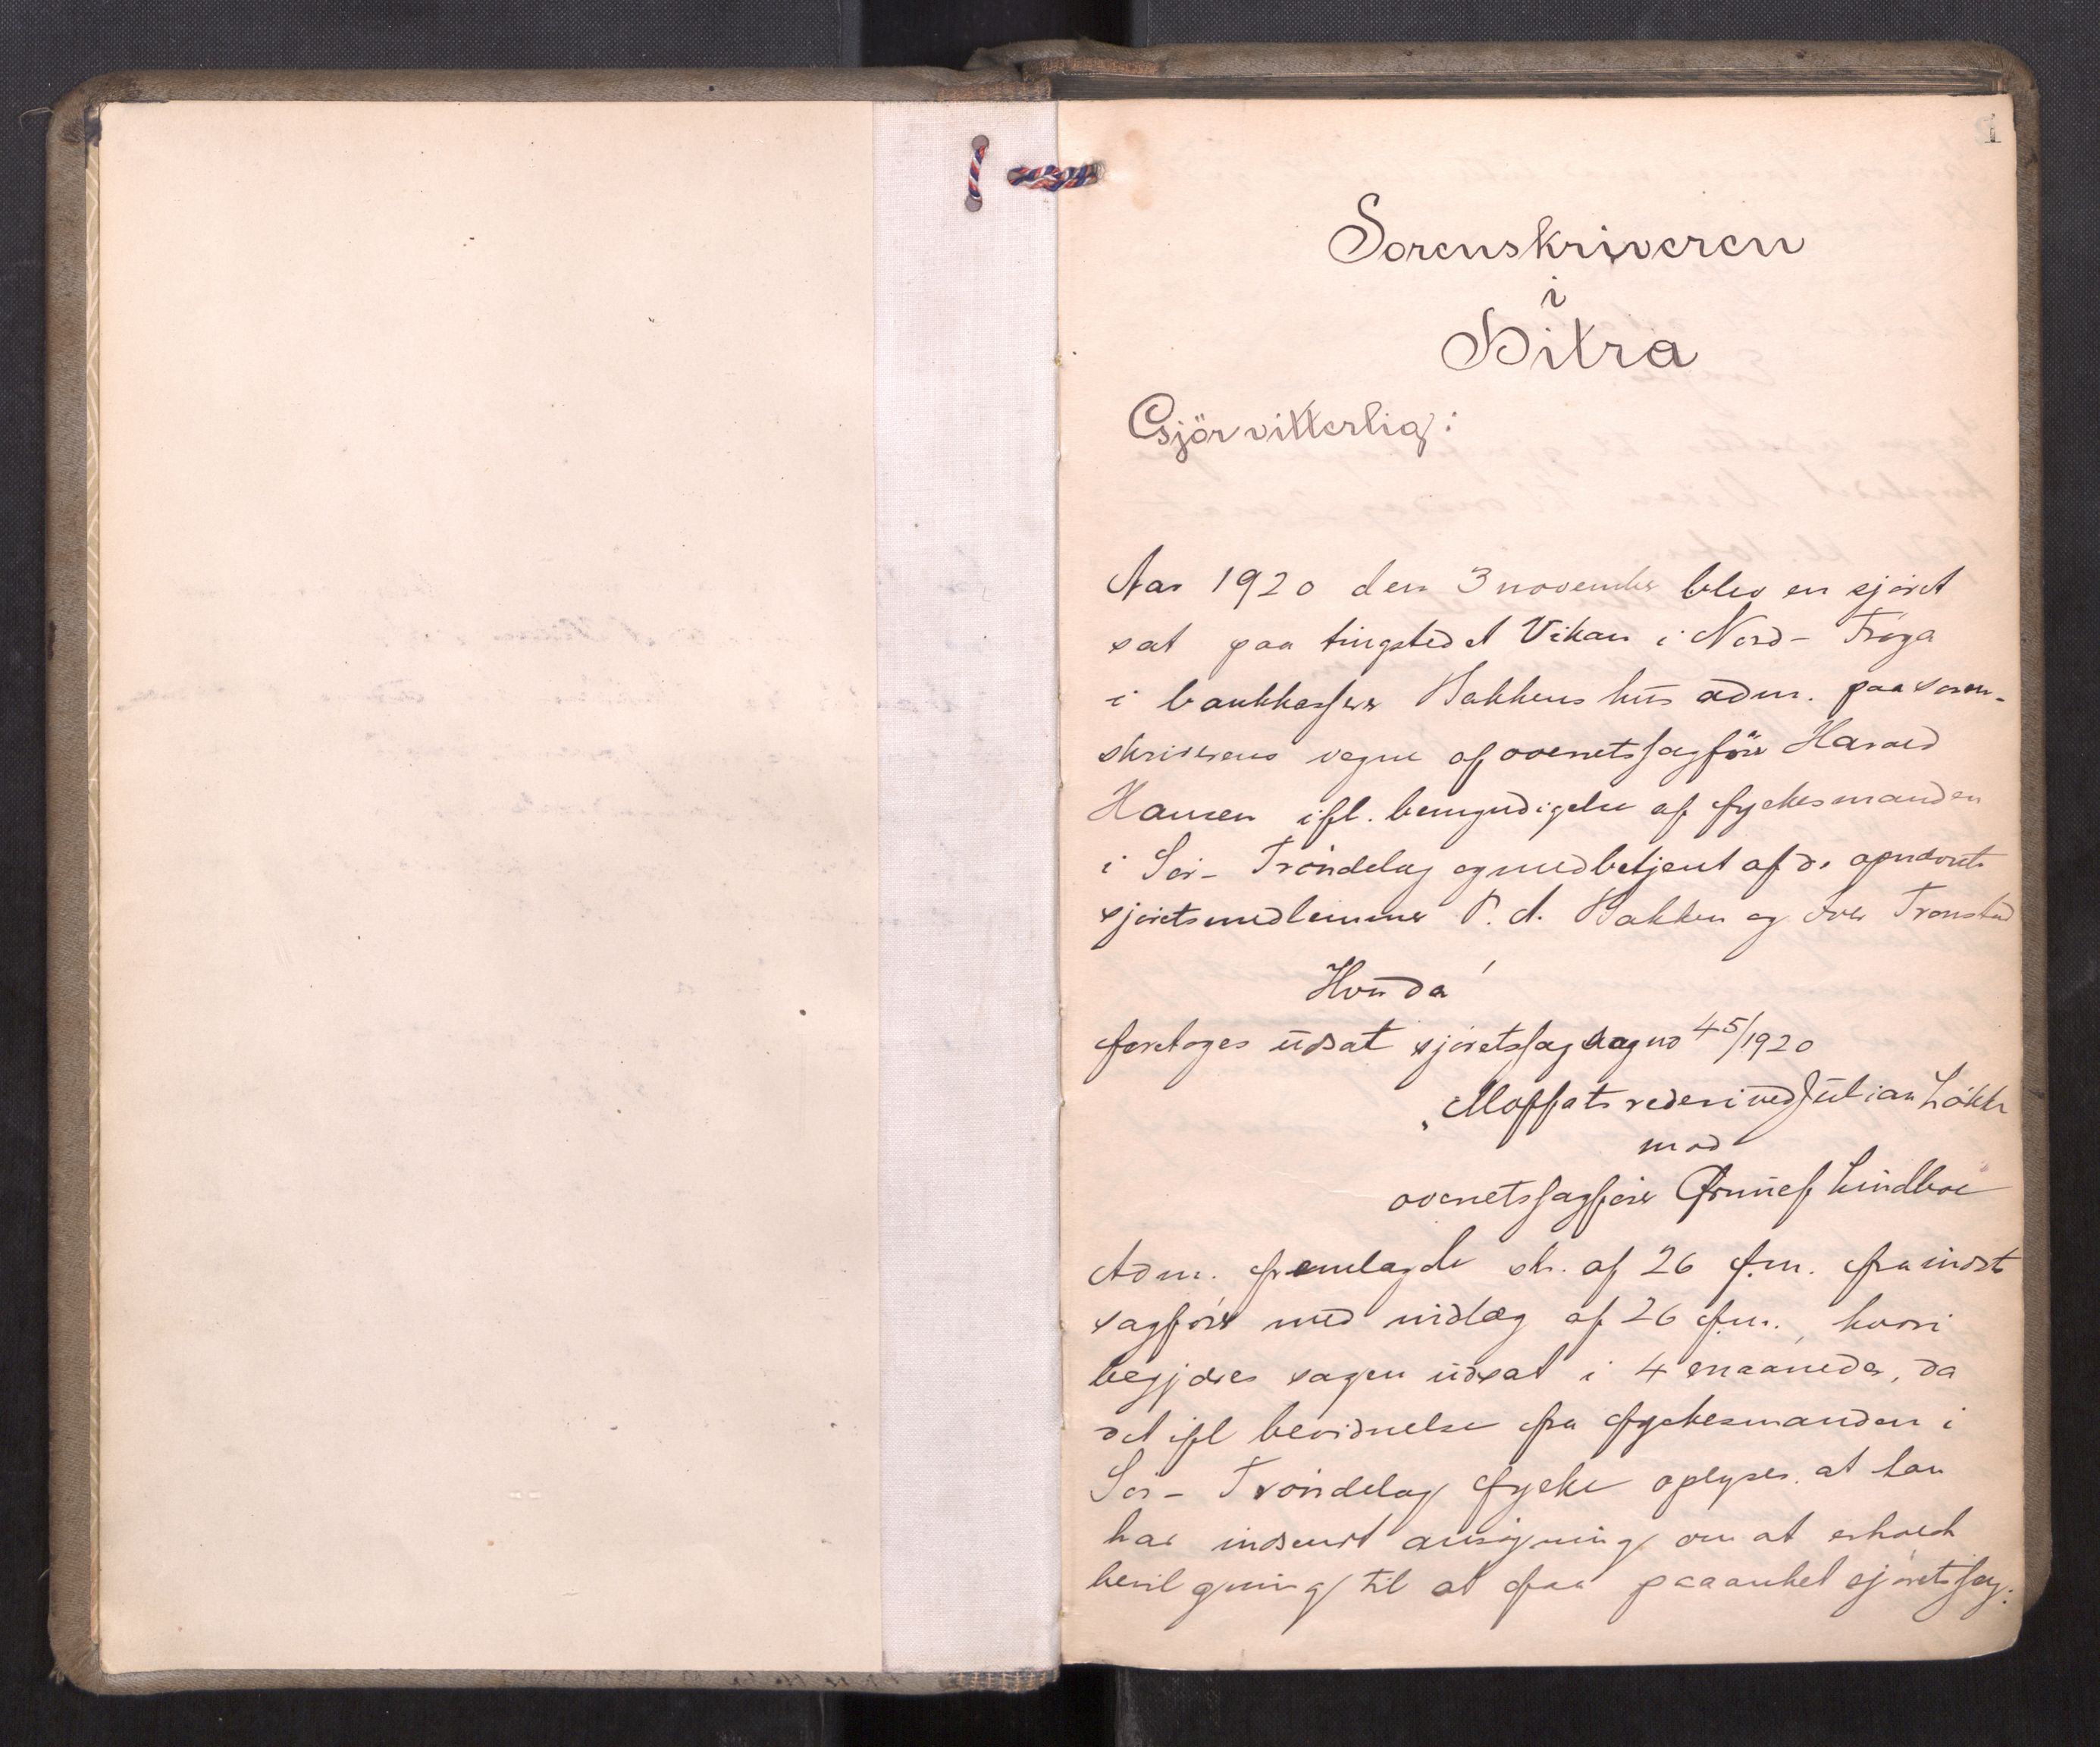 1
Sorenskriveren
i
Hitra
Gjör vitterlig:
Aar 1920 den 3 november blev en sjöret
sat paa tingstedet Vikan i Nord-Fröya
i bankkasserer Bakkens hus adm. paa soren-
skriverens vegne af overretssagförer Harald
Hansen ifl. bemyndigelse af fylkesmanden
i Sör-Tröndelag og medbetjent af de opnævnte
sjöretsmedlemmer P. A. Bakken og Iver Tronstad
Hvorda
foretoges udsat sjöretssag sag no 45/1920
Moffats rederi ved Julian Lökke
mod
overretssagförer Brunef Lindboe
Adm. fremlagde skr. af 26 f.m. fra indst.
sagförer med indlæg af 26 f.m., hvori
begjæres sagen udsat i 4 maaneder, da
det ifl bevidnelse fra fylkesmanden i
Sör-Tröndelag fylke oplyses at han
har indsendt ansögning om at erholde
bevilgning til at faa paaanket sjöretssag.